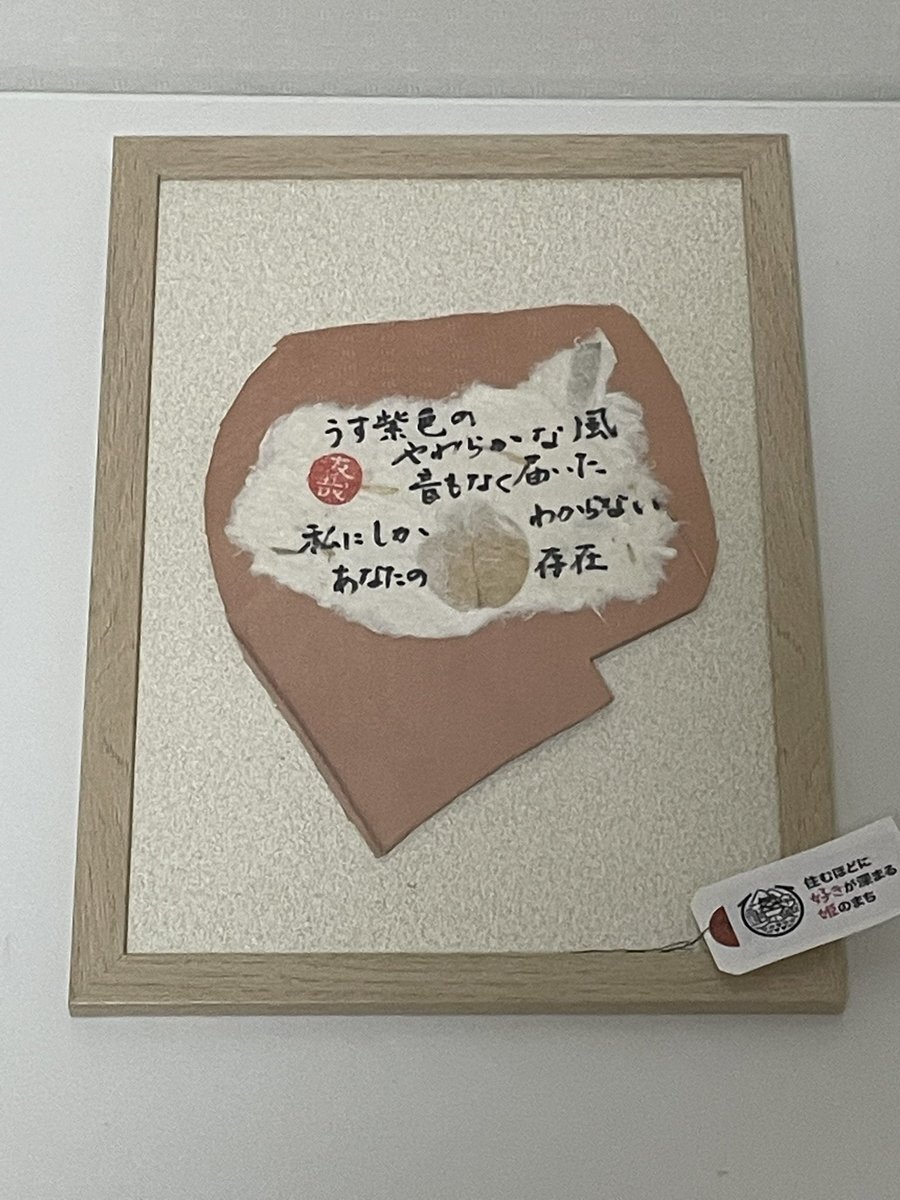 うす紫色の
やわらかな風
音もなく届いた
私にしか
わからない
あなたの
存在
友哉
住むほどに
好きが深まる
姫のまち